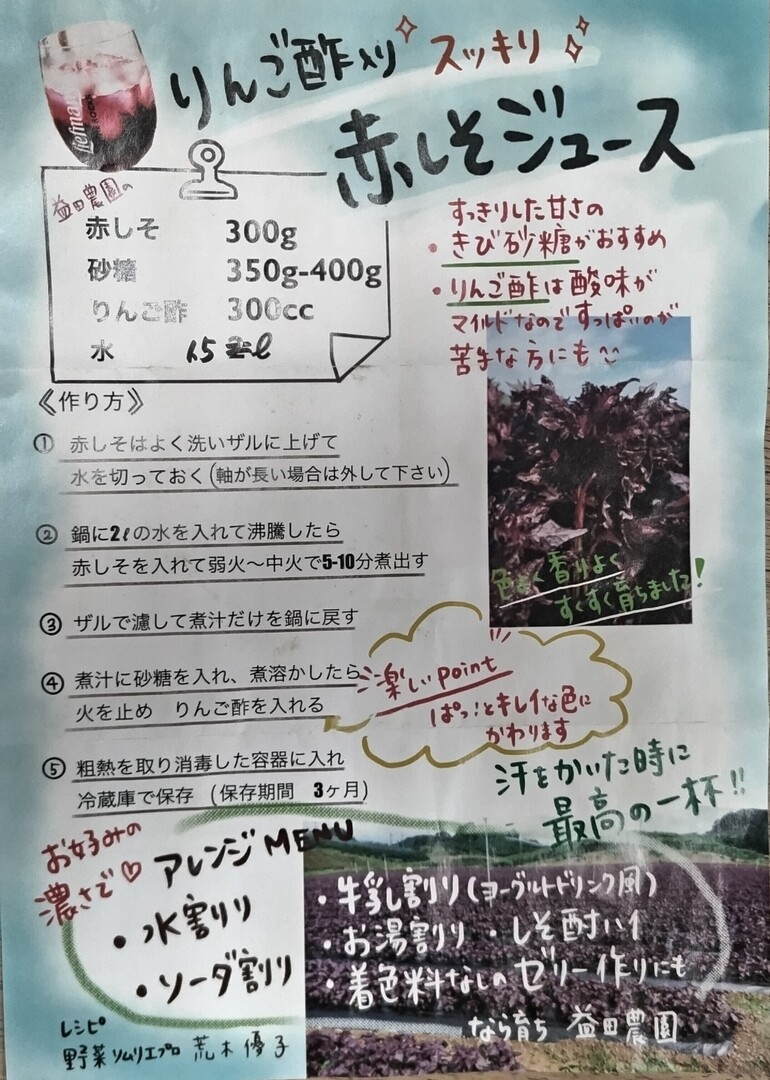 りんご酢入り スッキリ
赤しそジュース
益田農園の
赤しそ 300g
砂糖 350g-400g
りんご酢 300cc
水 1.5 ℓ
すっきりした甘さの
・きび砂糖がおすすめ
・りんご酢は酸味が
マイルドなのですっぱいのが
苦手な方にも
《作り方》
① 赤しそはよく洗いザルに上げて
水を切っておく(軸が長い場合は外して下さい)
② 鍋に2ℓの水を入れて沸騰したら
赤しそを入れて弱火～中火で5-10分煮出す
③ ザルで濾して煮汁だけを鍋に戻す
④ 煮汁に砂糖を入れ、煮溶かしたら
火を止め りんご酢を入れる
⑤ 粗熱を取り消毒した容器に入れ
冷蔵庫で保存 (保存期間 3ヶ月)
色よく香りよく
すくすく育ちました!
楽しいpoint
ぱっ!とキレイな色に
かわります
汗をかいた時に
最高の一杯!!
お好みの
濃さで♡
アレンジMENU
・水割り
・ソーダ割り
・牛乳割り(ヨーグルトドリンク風)
・お湯割り ・しそ酎ハイ
・着色料なしのゼリー作りにも
なら育ち 益田農園
レシピ
野菜ソムリエプロ 荒木優子